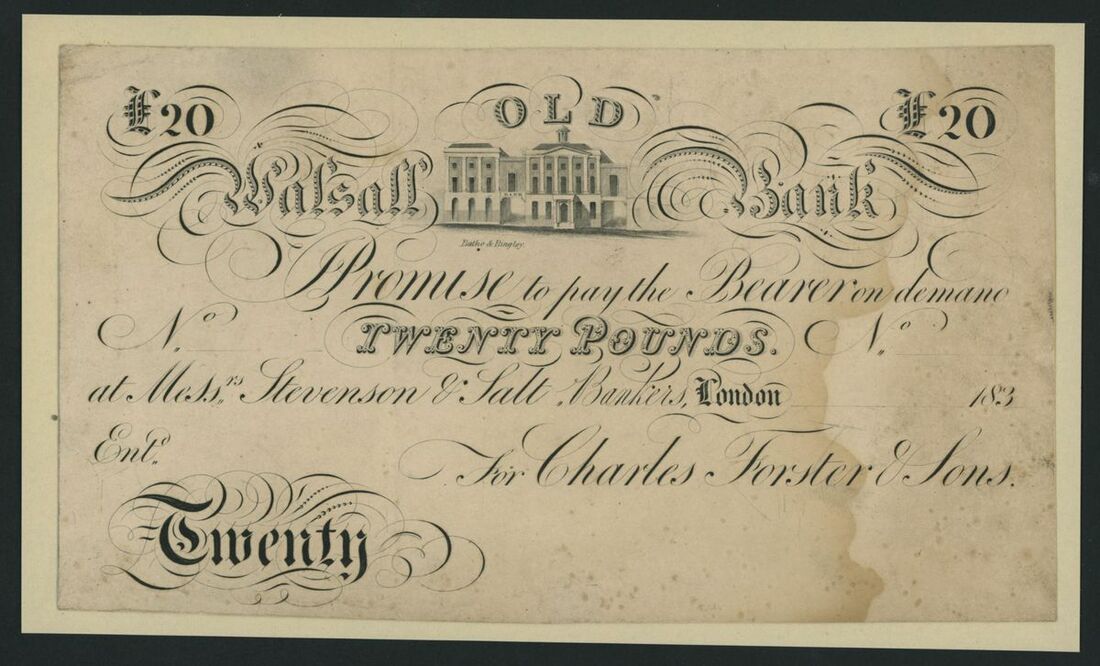 £20 OLD £20
Walsall Bank
Batho & Bingley.
I Promise to pay the Bearer on demand
No. TWENTY POUNDS. No.
at Messrs. Stevenson & Salt, Bankers, London 183
Entd. For Charles Forster & Sons.
Twenty